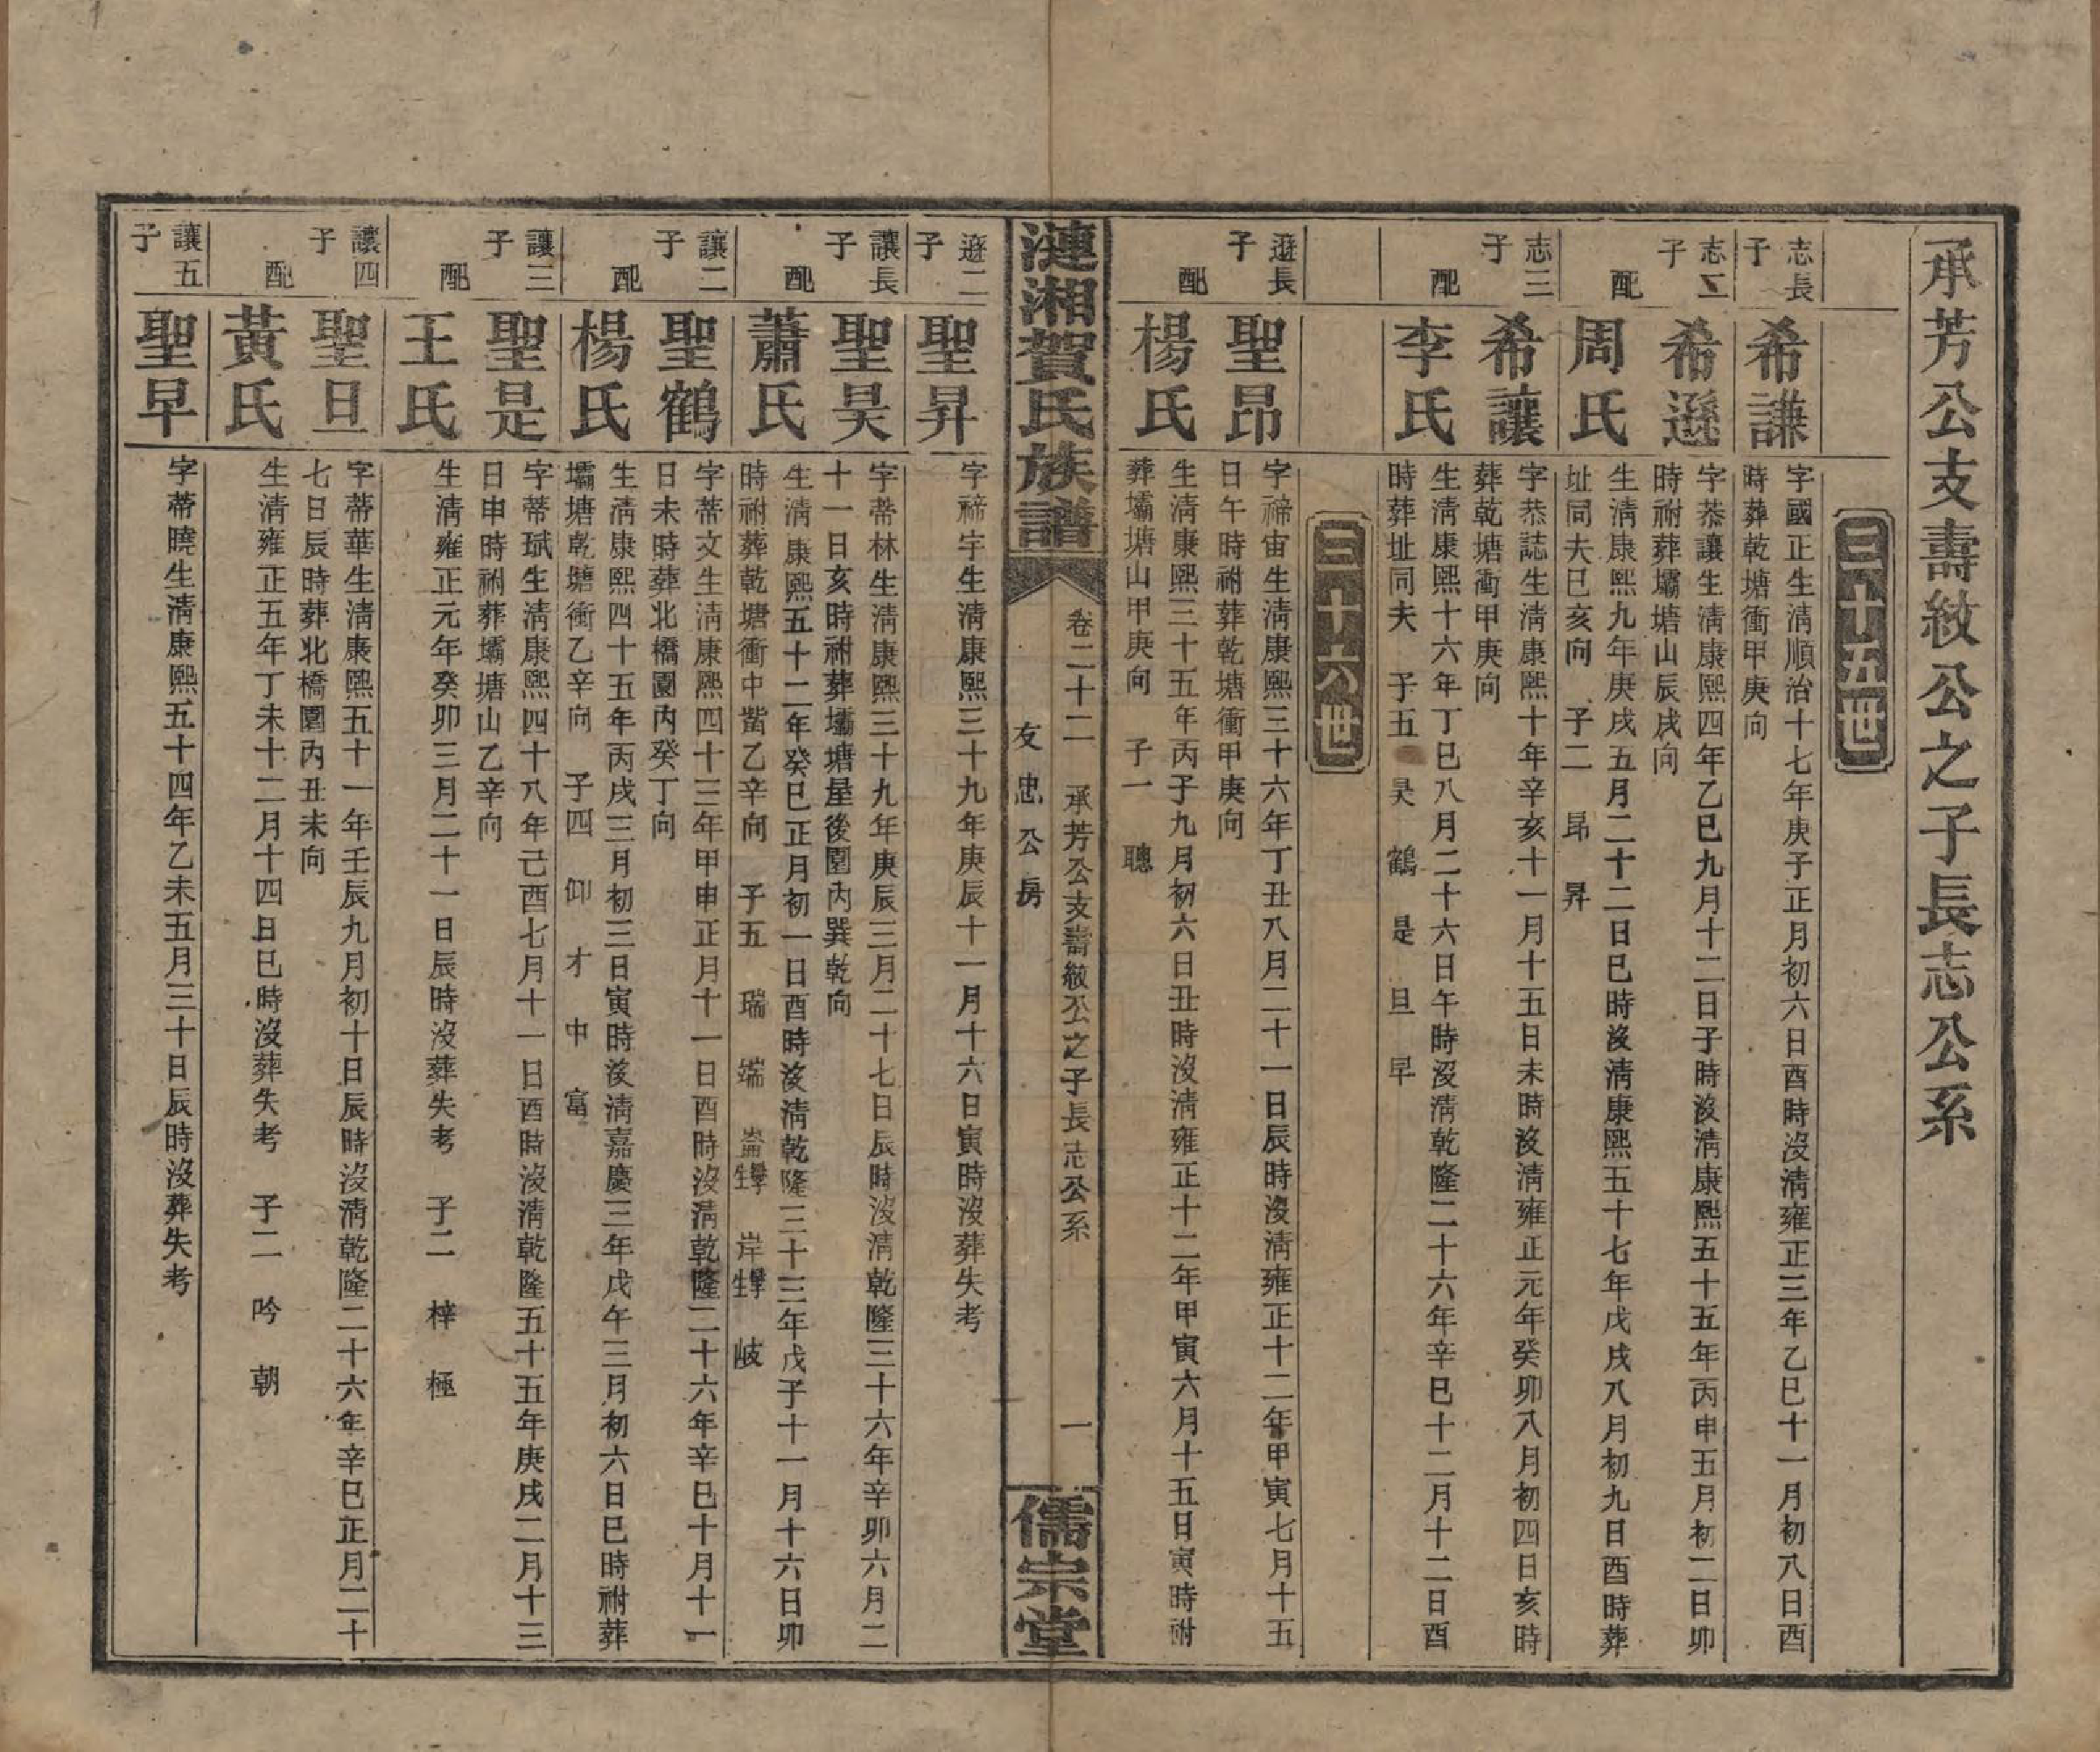 承芳公支壽紋公之子長志公系
三十五世
志長子
希謙
字國正生淸順治十七年庚子正月初六日酉時沒淸雍正三年乙巳十一月初八日酉
時葬乾塘衝甲庚向
志二子
希遜
字恭讓生淸康熙四年乙巳九月十二日子時沒淸康熙五十五年丙申五月初二日卯
時祔葬壩塘山辰戌向
配
周氏
生淸康熙九年庚戌五月二十二日巳時沒淸康熙五十七年戊戌八月初九日酉時葬
址同夫巳亥向 子二 昂 昇
志三子
希讓
字恭誌生淸康熙十年辛亥十一月十五日未時沒淸雍正元年癸卯八月初四日亥時
葬乾塘衝甲庚向
配
李氏
生淸康熙十六年丁巳八月二十六日午時沒淸乾隆二十六年辛巳十二月十二日酉
時葬址同夫 子五 昊 鶴 是 旦 早
三十六世
遜長子
聖昂
字禘宙生淸康熙三十六年丁丑八月二十一日辰時沒淸雍正十二年甲寅七月十五
日午時祔葬乾塘衝甲庚向
配
楊氏
生淸康熙三十五年丙子九月初六日丑時沒淸雍正十二年甲寅六月十五日寅時祔
葬壩塘山甲庚向 子一 聰
漣湘賀氏族譜
卷二十二 承芳公支壽紋公之子長志公系 一
友忠公房
儒宗堂
遜二子
聖昇
字禘宇生淸康熙三十九年庚辰十一月十六日寅時沒葬失考
讓長子
聖昊
字蒂林生淸康熙三十九年庚辰三月二十七日辰時沒淸乾隆三十六年辛卯六月二
十一日亥時祔葬壩塘屋後園內巽乾向
配
蕭氏
生淸康熙五十二年癸巳正月初一日酉時沒淸乾隆三十三年戊子十一月十六日卯
時祔葬乾塘衝中嘴乙辛向 子五 瑞 端 崙學生 岸學生 岐
讓二子
聖鶴
字蒂文生淸康熙四十三年甲申正月十一日酉時沒淸乾隆二十六年辛巳十月十一
日未時葬北橋園內癸丁向
配
楊氏
生淸康熙四十五年丙戌三月初三日寅時沒淸嘉慶三年戊午三月初六日巳時祔葬
壩塘乾塘衝乙辛向 子四 仰 才 中 富
讓三子
聖是
字蒂珷生淸康熙四十八年己酉七月十一日酉時沒淸乾隆五十五年庚戌二月十三
日申時祔葬壩塘山乙辛向
配
王氏
生淸雍正元年癸卯三月二十一日辰時沒葬失考 子二 梓 極
讓四子
聖旦
字蒂華生淸康熙五十一年壬辰九月初十日辰時沒淸乾隆二十六年辛巳正月二十
七日辰時葬北橋園內丑未向
配
黃氏
生淸雍正五年丁未十二月十四日巳時沒葬失考 子二 吟 朝
讓五子
聖早
字蒂曉生淸康熙五十四年乙未五月三十日辰時沒葬失考